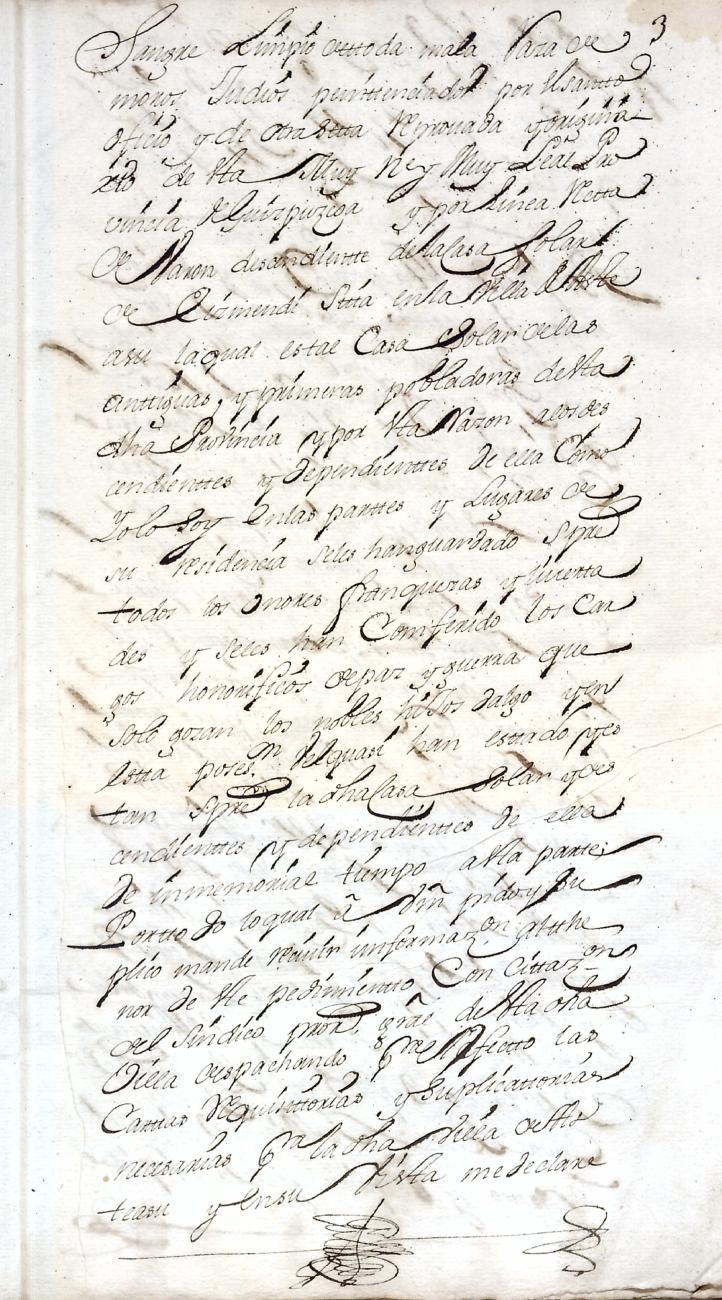 3
Sangre Limpio dettoda mala Raza de
moros Judios penittenciados por el santto
oficio y de otra Setta Reprouada y origina
rio de esta Muy N. y Muy Leal Pro
vincia de Guipuzcoa y por Linea Recta
de Varon descendientte de la Casa Solar
de Eizmendi Sita en la Villa de Aste
asu la qual es tal Casa Solar de las
anttiguas y primeras pobladoras de esta
dha Provincia y por esta Razon a los des
cendienttes y dependienttes de ella Como
Yo lo soy en las parttes y Lugares de
su residencia se les han guardado Spre
todos los onores franquezas y liuerta
des y se les han Conferido los Car
gos honorificos de paz y guerra que
solo gozan los nobles hiJos dalgo y en
esta poses.on vel quasi han estado y es
tan Spre la dha Casa Solar y des
cendienttes y dependienttes de ella
de inmemorial tiempo a esta parte
Portto do lo qual a Vm pido y su
plico mande reciuir informaz.on al the
nor de este pedimientto Con cittaz.on
del sindico pror. gral de esta dha
Villa despachando pra el efectto las
Carttas Requisittorias y suplicattorias
necesarias pra la dha Villa de As
teasu y en su Vista me declare